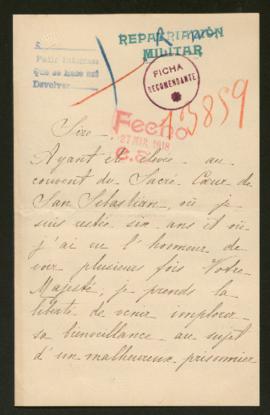 REPATRIACIÓN
MILITAR
Pedir Informes
Que se hable así
Devolver
FICHA
RECOMENDANTE
13859
Fecho
27 MAR. 1918
Sire,
Ayant été élevée au
couvent du Sacré Cœur de
San Sébastian, où je
suis restée six ans et où
j'ai eu l'honneur de
voir plusieurs fois Votre
Majesté, je prends la
liberté de venir implorer
sa bienveillance au sujet
d'un malheureux prisonnier